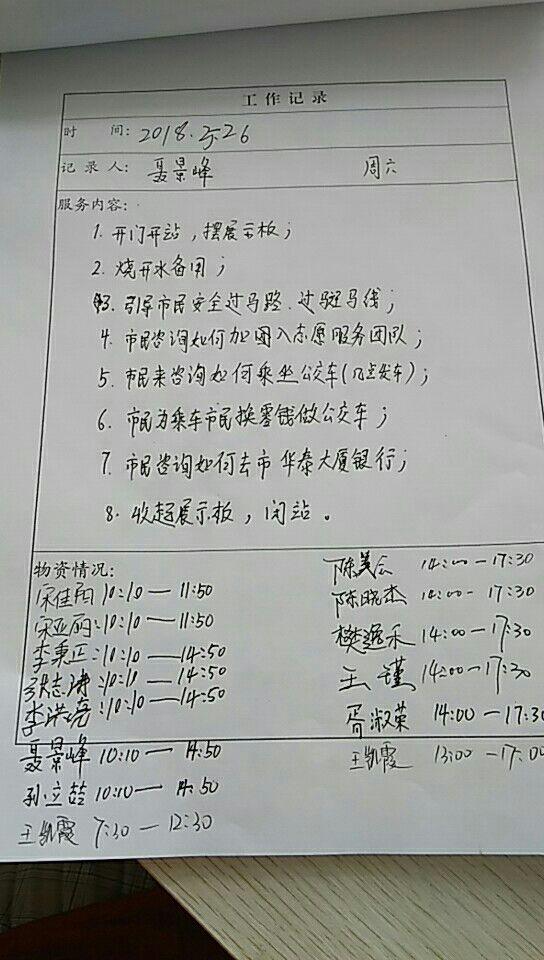 工作记录
时 间: 2018.5.26
记录人: 聂景峰 周六
服务内容:
1. 开门开站,摆展示板;
2. 烧开水备用;
3. 引导市民安全过马路、过斑马线;
4 市民咨询如何加入志愿服务团队;
5 市民来咨询如何乘坐公交车(几点发车);
6. 市民为乘车市民换零钱做公交车;
7. 市民咨询如何去市华泰大厦银行;
8. 收起展示板,闭站。
物资情况:
宋佳翔 10:10—11:50
宋亚丽:10:10—11:50
李秉正:10:10—14:50
张志涛:10:10—14:50
李洪尧:10:10—14:50
聂景峰 10:10—14:50
孙立喆 10:10—14:50
王凯霞 7:30—12:30
陈美云 14:00—17:30
陈晓杰 14:00-17:30
樊逸禾 14:00—17:30
王瑾 14:00—17:30
胥淑荣 14:00—17:30
王凯霞 13:00—17:00